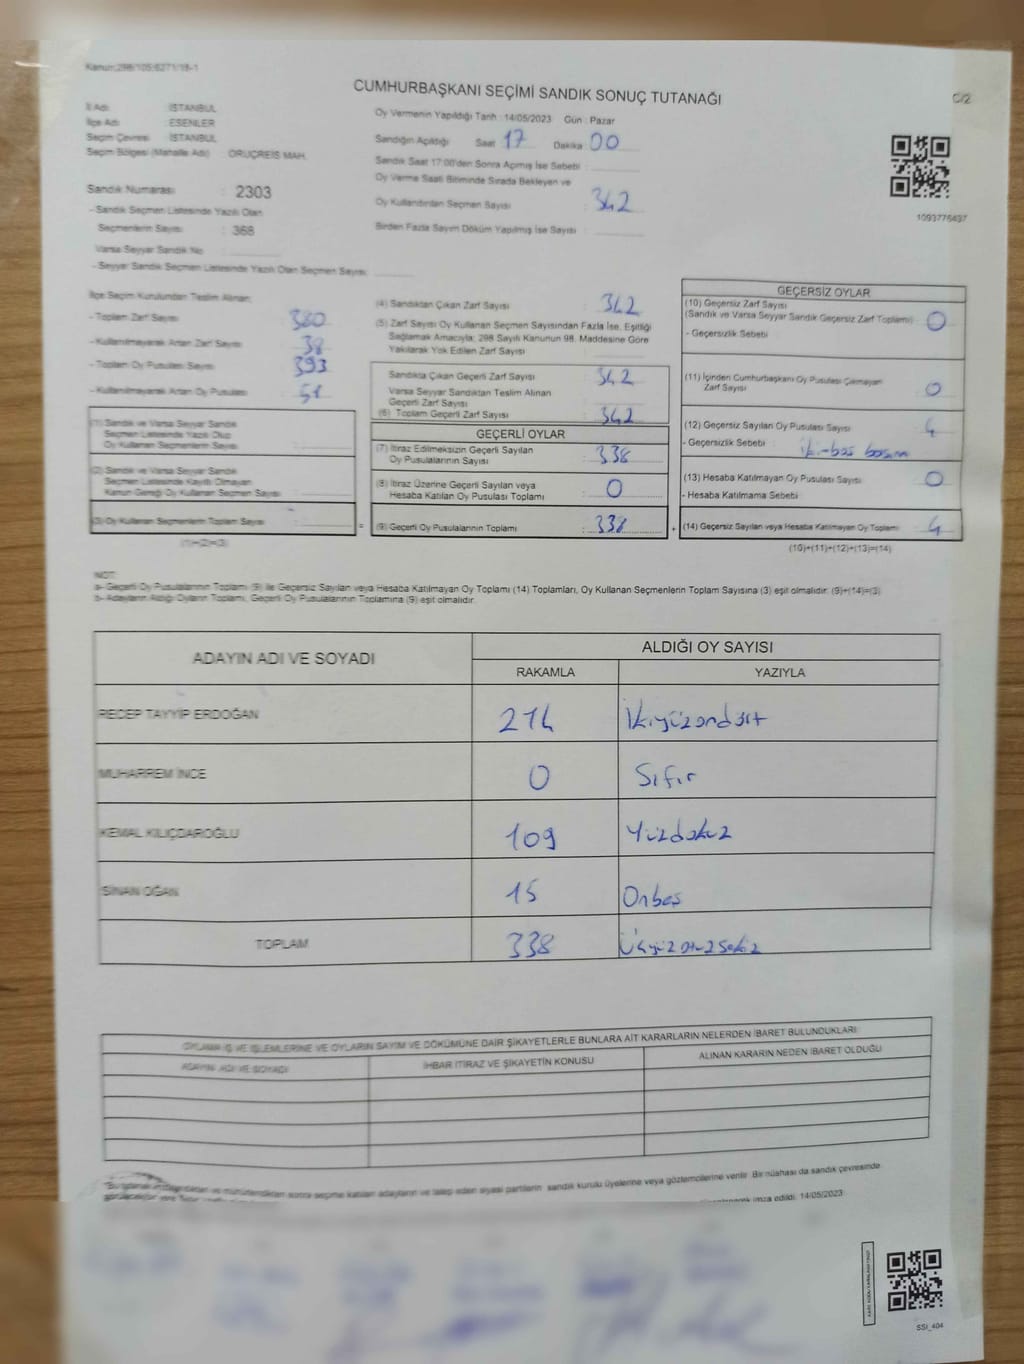 Kanun:298/105;6271/18-1
CUMHURBAŞKANI SEÇİMİ SANDIK SONUÇ TUTANAĞI
C/2
İl Adı : İSTANBUL
İlçe Adı : ESENLER
Seçim Çevresi : İSTANBUL
Seçim Bölgesi (Mahalle Adı) : ORUÇREİS MAH.
Sandık Numarası : 2303
- Sandık Seçmen Listesinde Yazılı Olan
Seçmenlerin Sayısı : 368
Varsa Seyyar Sandık No :
- Seyyar Sandık Seçmen Listesinde Yazılı Olan Seçmen Sayısı:
Oy Vermenin Yapıldığı Tarih : 14/05/2023 Gün : Pazar
Sandığın Açıldığı Saat : 17 Dakika : 00
Sandık Saat 17:00'den Sonra Açılmış İse Sebebi :
Oy Verme Saati Bitiminde Sırada Bekleyen ve
Oy Kullandırılan Seçmen Sayısı : 342
Birden Fazla Sayım Döküm Yapılmış İse Sayısı :
1093776437
İlçe Seçim Kurulundan Teslim Alınan;
- Toplam Zarf Sayısı : 380
- Kullanılmayarak Artan Zarf Sayısı : 38
- Toplam Oy Pusulası Sayısı : 393
- Kullanılmayarak Artan Oy Pusulası : 51
(1) Sandık ve Varsa Seyyar Sandık
Seçmen Listesinde Yazılı Olup
Oy Kullanan Seçmenlerin Sayısı :
(2) Sandık ve Varsa Seyyar Sandık
Seçmen Listesinde Kayıtlı Olmayan
Kanun Gereği Oy Kullanan Seçmen Sayısı :
(3) Oy Kullanan Seçmenlerin Toplam Sayısı :
(1)+(2)=(3)
(4) Sandıktan Çıkan Zarf Sayısı : 342
(5) Zarf Sayısı Oy Kullanan Seçmen Sayısından Fazla İse, Eşitliği
Sağlamak Amacıyla; 298 Sayılı Kanunun 98. Maddesine Göre
Yakılarak Yok Edilen Zarf Sayısı :
Sandıkta Çıkan Geçerli Zarf Sayısı : 342
Varsa Seyyar Sandıktan Teslim Alınan
Geçerli Zarf Sayısı :
(6) Toplam Geçerli Zarf Sayısı : 342
GEÇERLİ OYLAR
(7) İtiraz Edilmeksizin Geçerli Sayılan
Oy Pusulalarının Sayısı : 338
(8) İtiraz Üzerine Geçerli Sayılan veya
Hesaba Katılan Oy Pusulası Toplamı : 0
= (9) Geçerli Oy Pusulalarının Toplamı : 338
GEÇERSİZ OYLAR
(10) Geçersiz Zarf Sayısı
(Sandık ve Varsa Seyyar Sandık Geçersiz Zarf Toplamı) : 0
- Geçersizlik Sebebi :
(11) İçinden Cumhurbaşkanı Oy Pusulası Çıkmayan
Zarf Sayısı : 0
(12) Geçersiz Sayılan Oy Pusulası Sayısı : 4
- Geçersizlik Sebebi :
(13) Hesaba Katılmayan Oy Pusulası Sayısı : 0
- Hesaba Katılmama Sebebi :
+ (14) Geçersiz Sayılan veya Hesaba Katılmayan Oy Toplamı : 4
(10)+(11)+(12)+(13)=(14)
NOT:
a- Geçerli Oy Pusulalarının Toplamı (9) ile Geçersiz Sayılan veya Hesaba Katılmayan Oy Toplamı (14) Toplamları, Oy Kullanan Seçmenlerin Toplam Sayısına (3) eşit olmalıdır. (9)+(14)=(3)
b- Adayların Aldığı Oyların Toplamı, Geçerli Oy Pusulalarının Toplamına (9) eşit olmalıdır.
ADAYIN ADI VE SOYADI
ALDIĞI OY SAYISI
RAKAMLA YAZIYLA
RECEP TAYYİP ERDOĞAN 214 İkiyüzondört
MUHARREM İNCE 0 Sıfır
KEMAL KILIÇDAROĞLU 109 Yüzdokuz
SİNAN OĞAN 15 Onbeş
TOPLAM 338 Üçyüzotuzsekiz
OYLAMA İŞ VE İŞLEMLERİNE VE OYLARIN SAYIM VE DÖKÜMÜNE DAİR ŞİKAYETLERLE BUNLARA AİT KARARLARIN NELERDEN İBARET BULUNDUKLARI
ADAYIN ADI VE SOYADI İHBAR İTİRAZ VE ŞİKAYETİN KONUSU ALINAN KARARIN NEDEN İBARET OLDUĞU
seçime katılan adayların ve talep eden siyasi partilerin sandık kurulu üyelerine veya gözlemcilerine verilir. Bir nüshası da sandık çevresinde
imza edildi. 14/05/2023
SSI_404